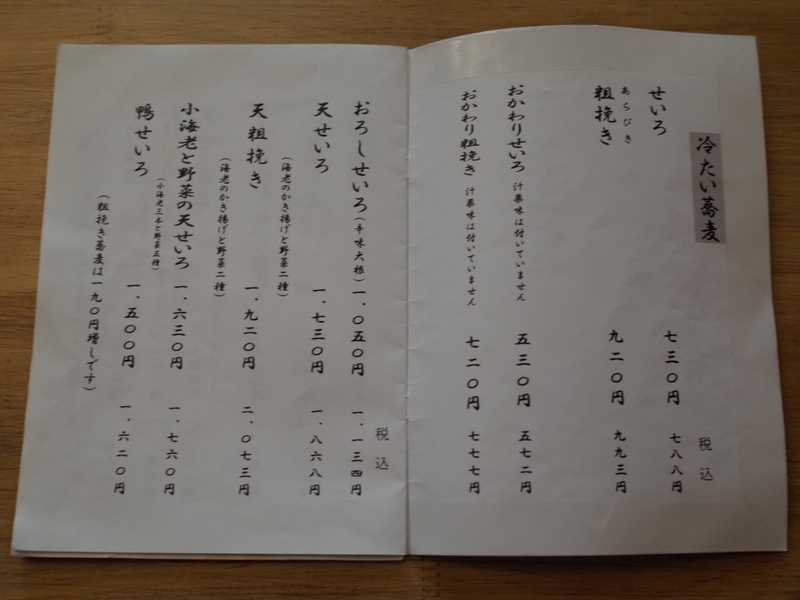 冷たい蕎麦
税込
せいろ 七三〇円 七八八円
あらびき
粗挽き 九二〇円 九九三円
おかわりせいろ 汁薬味は付いていません 五三〇円 五七二円
おかわり粗挽き 汁薬味は付いていません 七二〇円 七七七円
税込
おろしせいろ(辛味大根) 一、〇五〇円 一、一三四円
天せいろ 一、七三〇円 一、八六八円
(海老のかき揚げと野菜二種)
天粗挽き 一、九二〇円 二、〇七三円
(海老のかき揚げと野菜二種)
小海老と野菜の天せいろ 一、六三〇円 一、七六〇円
(小海老三本と野菜三種)
鴨せいろ 一、五〇〇円 一、六二〇円
(粗挽き蕎麦は一九〇円増しです)